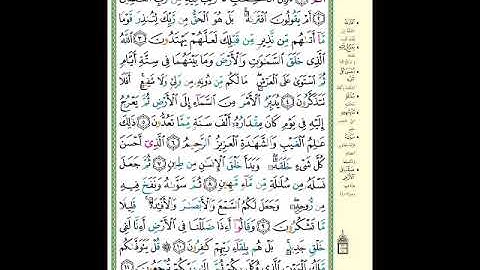 ٢ أَمْ يَقُولُونَ ٱفْتَرَىٰهُ ۚ بَلْ هُوَ ٱلْحَقُّ مِن رَّبِّكَ لِتُنذِرَ قَوْمًا
مَّآ أَتَىٰهُم مِّن نَّذِيرٍ مِّن قَبْلِكَ لَعَلَّهُمْ يَهْتَدُونَ ٣ ٱللَّهُ
ٱلَّذِى خَلَقَ ٱلسَّمَٰوَٰتِ وَٱلْأَرْضَ وَمَا بَيْنَهُمَا فِى سِتَّةِ أَيَّامٍ
ثُمَّ ٱسْتَوَىٰ عَلَى ٱلْعَرْشِ ۖ مَا لَكُم مِّن دُونِهِۦ مِن وَلِىٍّ وَلَا شَفِيعٍ ۚ أَفَلَا
تَتَذَكَّرُونَ ٤ يُدَبِّرُ ٱلْأَمْرَ مِنَ ٱلسَّمَآءِ إِلَى ٱلْأَرْضِ ثُمَّ يَعْرُجُ
إِلَيْهِ فِى يَوْمٍ كَانَ مِقْدَارُهُۥٓ أَلْفَ سَنَةٍ مِّمَّا تَعُدُّونَ ٥ ذَٰلِكَ
عَٰلِمُ ٱلْغَيْبِ وَٱلشَّهَٰدَةِ ٱلْعَزِيزُ ٱلرَّحِيمُ ٦ ٱلَّذِىٓ أَحْسَنَ
كُلَّ شَىْءٍ خَلَقَهُۥ ۖ وَبَدَأَ خَلْقَ ٱلْإِنسَٰنِ مِن طِينٍ ٧ ثُمَّ جَعَلَ
نَسْلَهُۥ مِن سُلَٰلَةٍ مِّن مَّآءٍ مَّهِينٍ ٨ ثُمَّ سَوَّىٰهُ وَنَفَخَ فِيهِ
مِن رُّوحِهِۦ ۖ وَجَعَلَ لَكُمُ ٱلسَّمْعَ وَٱلْأَبْصَٰرَ وَٱلْأَفْـِٔدَةَ ۚ قَلِيلًا
مَّا تَشْكُرُونَ ٩ وَقَالُوٓا۟ أَءِذَا ضَلَلْنَا فِى ٱلْأَرْضِ أَءِنَّا لَفِى
خَلْقٍ جَدِيدٍۭ ۚ بَلْ هُم بِلِقَآءِ رَبِّهِمْ كَٰفِرُونَ ١٠ قُلْ يَتَوَفَّىٰكُم
مَّلَكُ ٱلْمَوْتِ ٱلَّذِى وُكِّلَ بِكُمْ ثُمَّ إِلَىٰ رَبِّكُمْ تُرْجَعُونَ ١١